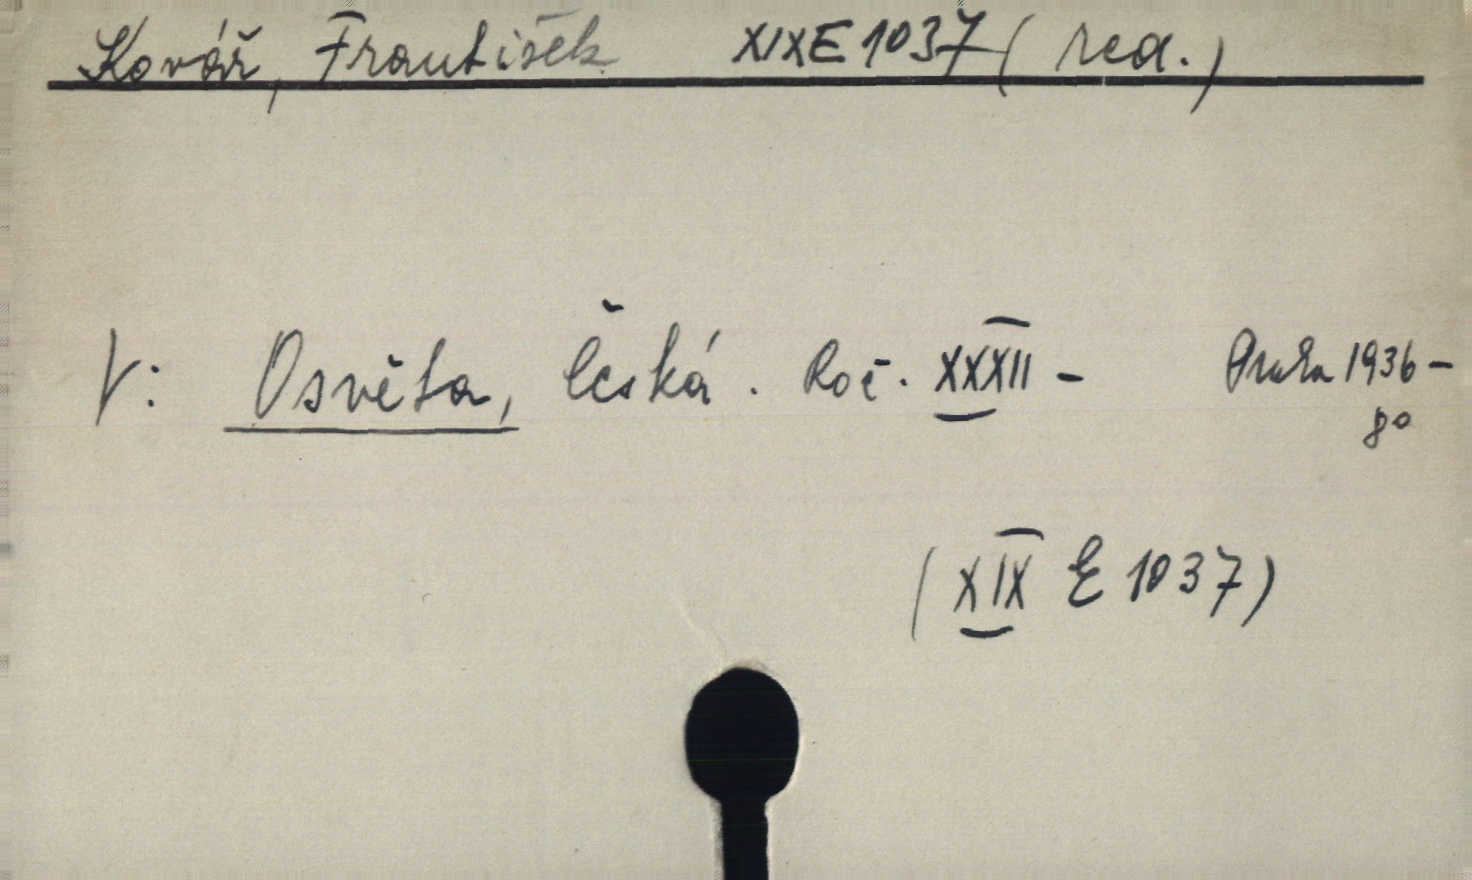 Kovář, František XIXE1037 (red.)
V: Osvěta, Česká. Roč. XXXII - Praha 1936-
8°
(XIX E 1037)